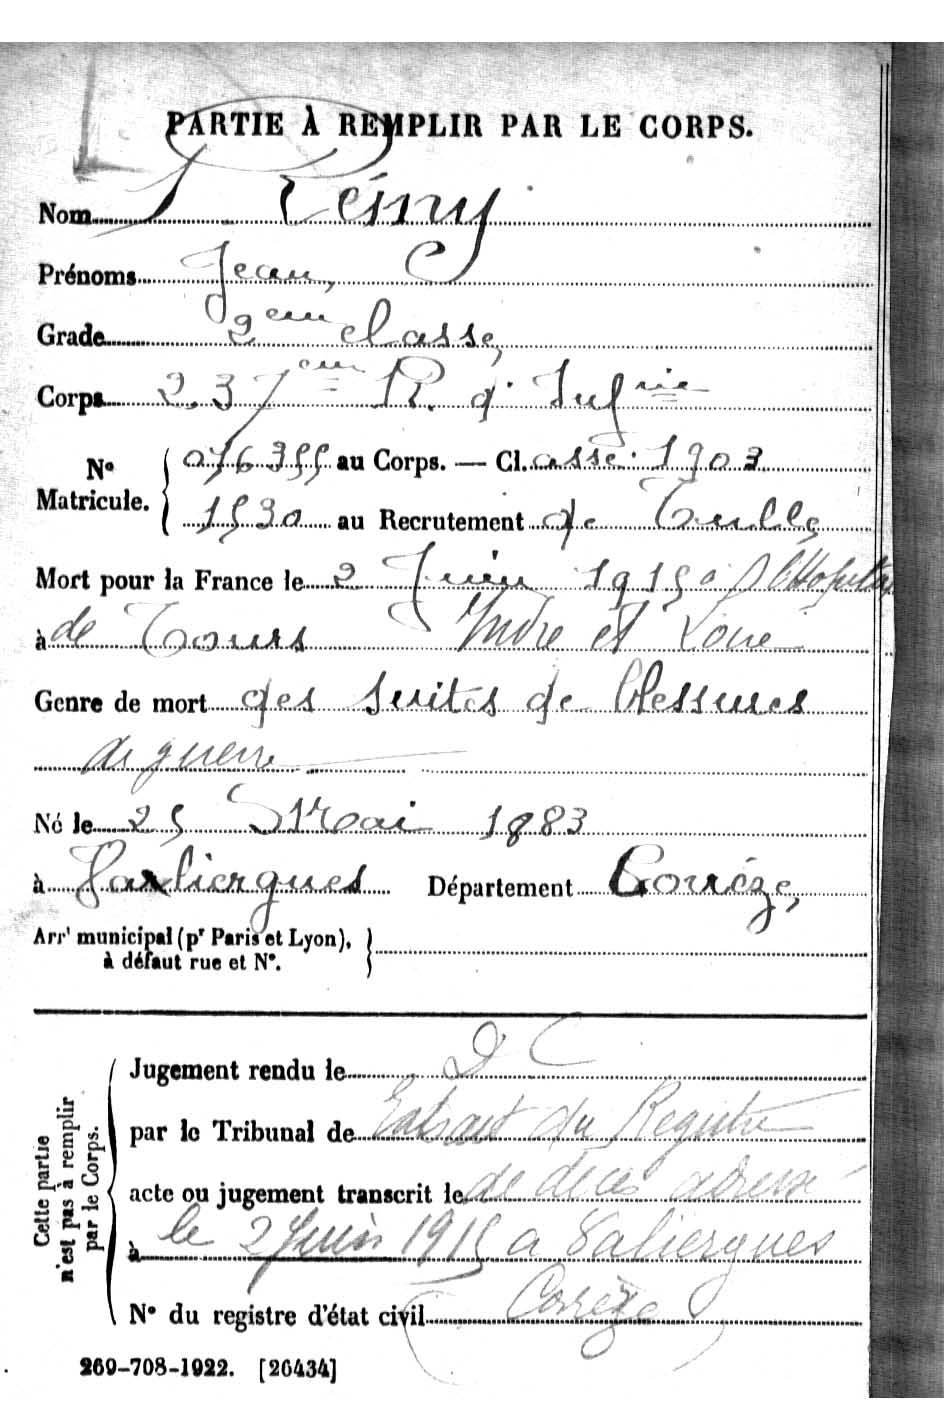 PARTIE À REMPLIR PAR LE CORPS.
Nom Rémy
Prénoms Jean,
Grade 2eme classe
Corps 237eme R. d'Infrie
No Matricule. 076355 au Corps. — Cl.asse. 1903
1530 au Recrutement de Tulle
Mort pour la France le 2 Juin 1915 à l'Hopital
à de Tours Indre et Loire
Genre de mort des suites de blessures
de guerre
Né le 25 Mai 1883
à Département Corrèze,
Arrt municipal (pr Paris et Lyon),
à défaut rue et No.
Cette partie
n'est pas à remplir
par le Corps.
Jugement rendu le D C
par le Tribunal de Extrait du Registre
acte ou jugement transcrit le de décès adressé
à le 2 Juin 1915 a Saliergues
No du registre d'état civil Corrèze
269-708-1922. [26434]